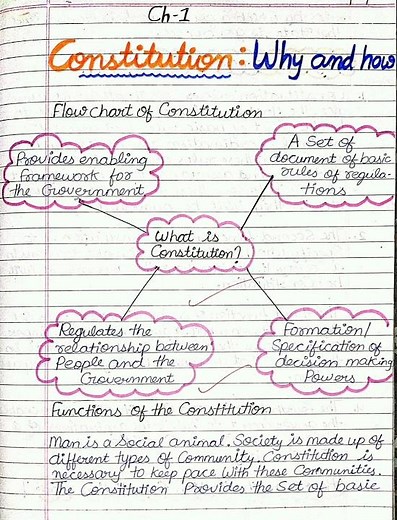 Ch-1
Constitution: Why and how
Flow chart of Constitution
Provides enabling
framework for
the Government
A Set of
document of basic
rules of regula-
tions
What is
Constitution?
Regulates the
relationship between
People and the
Government
Formation/
Specification of
decision making
Powers
Functions of the Constitution
Man is a Social animal. Society is made up of
different types of Community. Constitution is
necessary to keep pace with these Communities.
The Constitution Provides the Set of basic